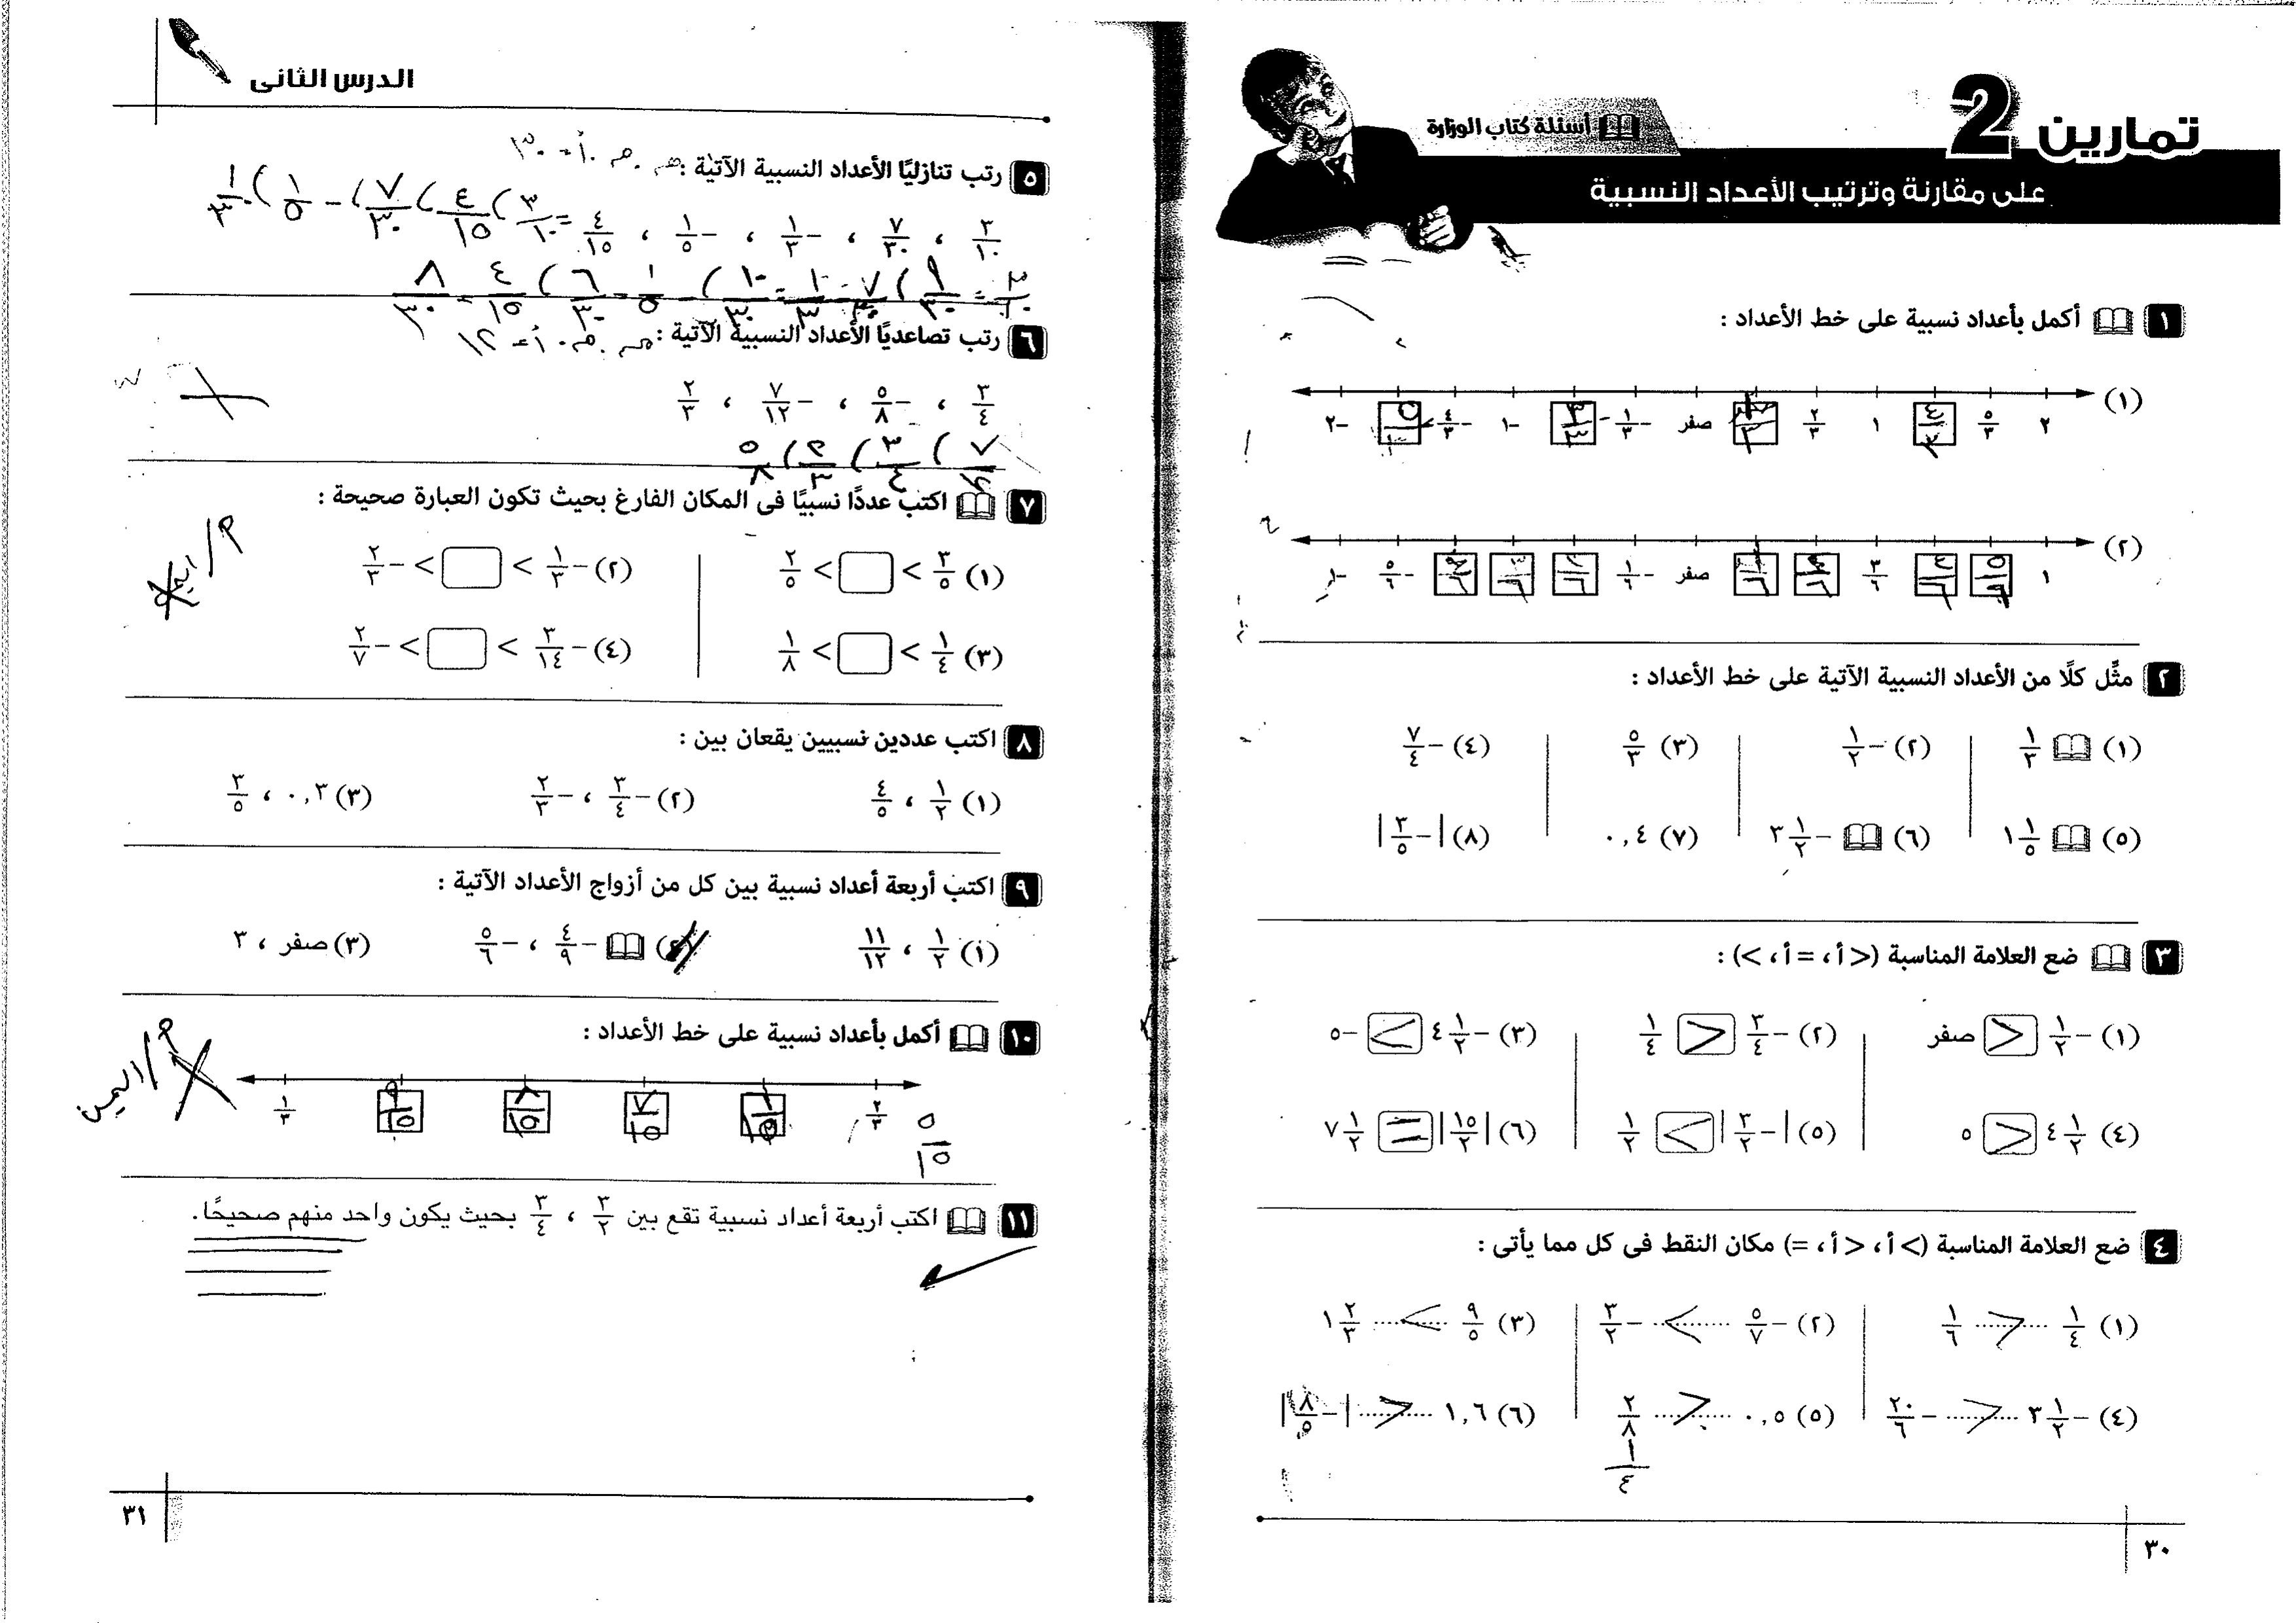 تمارين 2
أسئلة كتاب الوزارة
على مقارنة وترتيب الأعداد النسبية
١ أكمل بأعداد نسبية على خط الأعداد :
(١) ٢ ، ٥/٣ ، ٤/٣ ، ١ ، ٢/٣ ، صفر ، -١/٣ ، -٣/٣ ، -١ ، -٤/٣ ، -٢
(٢) ١ ، ٥/٦ ، ٤/٦ ، ٣/٦ ، صفر ، -١/٦ ، ٢/٦ ، ٣/٦ ، ٤/٦ ، -٥/٦ ، -١
٢ مثِّل كلًا من الأعداد النسبية الآتية على خط الأعداد :
(١) ١/٣ (٢) -١/٢ (٣) ٥/٣ (٤) -٧/٤
(٥) ١ ١/٥ (٦) -٣ ١/٢ (٧) ٠,٤ (٨) |-٣/٥|
٣ ضع العلامة المناسبة (< أ، = أ، >) :
(١) -١/٢ < صفر (٢) -٣/٤ < ١/٤ (٣) -٤ ١/٢ > -٥
(٤) ٤ ١/٢ < ٥ (٥) |-٣/٢| > ١/٢ (٦) |١٥/٢| = ٧ ١/٢
٤ ضع العلامة المناسبة (> أ، < أ، =) مكان النقط فى كل مما يأتى :
(١) ١/٤ ........ ١/٦ (٢) -٥/٧ ........ -٣/٢ (٣) ٩/٥ ........ ١ ٢/٣
(٤) -٣ ١/٢ ........ -٢٠/٦ (٥) ٠,٥ ........ ٢/٨ (٦) ١,٦ ........ |-٨/٥|
١/٤
٣٠
الدرس الثانى
٥ رتب تنازليًا الأعداد النسبية الآتية : م.م.أ = ٣٠
٣/١٠ ، ٧/٣٠ ، -١/٣ ، -١/٥ ، ٤/١٥
= ٣/١٠ ، ٤/١٥ ، ٧/٣٠ ، -١/٥ ، ١/٣
٣/١٠ = ٩/٣٠ ، ٧/٣٠ ، -١/٣ = ١٠/٣٠ ، -١/٥ = ٦/٣٠ ، ٤/١٥ = ٨/٣٠
٦ رتب تصاعديًا الأعداد النسبية الآتية : م.م.أ = ١٢
٣/٤ ، -٥/٨ ، -٧/١٢ ، ٢/٣
٧/١٢ ، ٣/٤ ، ٢/٣ ، ٥/٨
٧ اكتب عددًا نسبيًا فى المكان الفارغ بحيث تكون العبارة صحيحة :
(١) ٣/٥ > □ > ٢/٥ (٢) -١/٣ > □ > -٢/٣
(٣) ١/٤ > □ > ١/٨ (٤) -٣/١٤ > □ > -٢/٧
٨ اكتب عددين نسبيين يقعان بين :
(١) ١/٢ ، ٤/٥ (٢) -٣/٤ ، -٢/٣ (٣) ٠,٣ ، ٣/٥
٩ اكتب أربعة أعداد نسبية بين كل من أزواج الأعداد الآتية :
(١) ١/٢ ، ١١/١٢ (٢) -٤/٩ ، -٥/٦ (٣) صفر ، ٣
١٠ أكمل بأعداد نسبية على خط الأعداد :
٢/٣ ، ٧/١٥ ، ٨/١٥ ، ٩/١٥ ، ١/٣
٥/١٥
١١ اكتب أربعة أعداد نسبية تقع بين ٣/٢ ، ٣/٤ بحيث يكون واحد منهم صحيحًا.
٣١